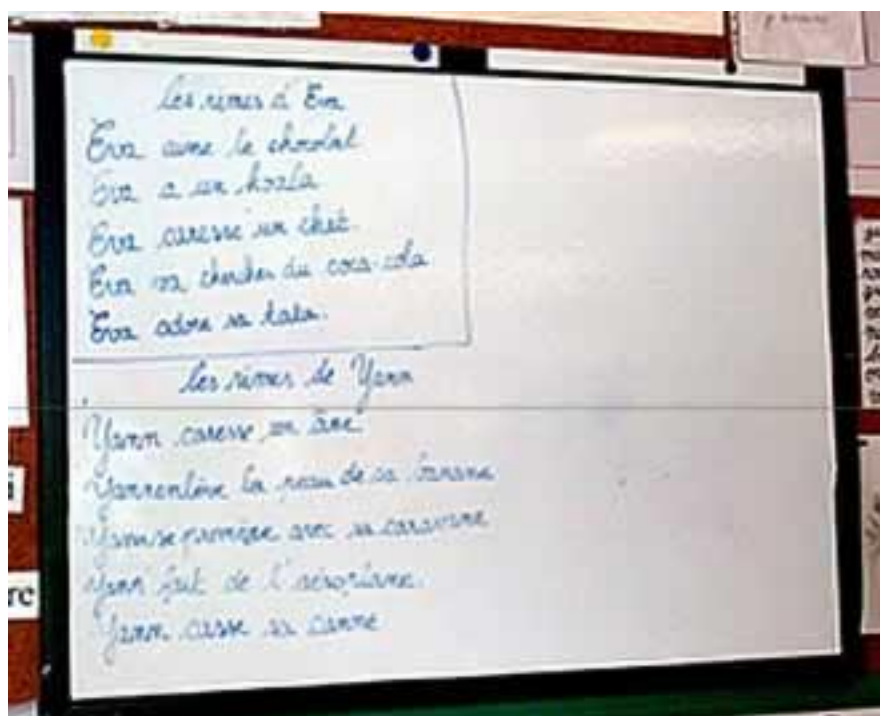 les rimes d'Eva
Eva aime le chocolat
Eva a un koala
Eva caresse un chat.
Eva va chercher du coca-cola
Eva adore sa tata.
les rimes de Yann
Yann caresse un âne
Yann enlève la peau de sa banane
Yann se promène avec sa caravane
Yann fait de l'aéroplane.
Yann casse sa canne
re